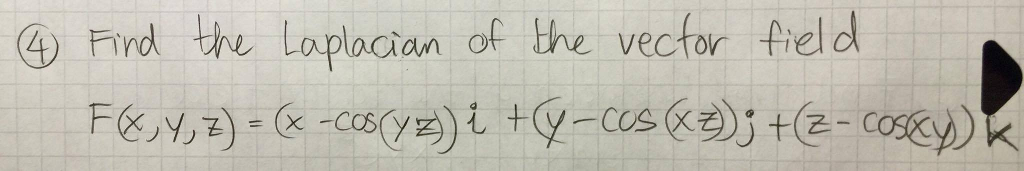 ④ Find the Laplacian of the vector field
F(x,y,z) = (x -cos(yz)) i + (y-cos(xz))j + (z- cos(xy)) k